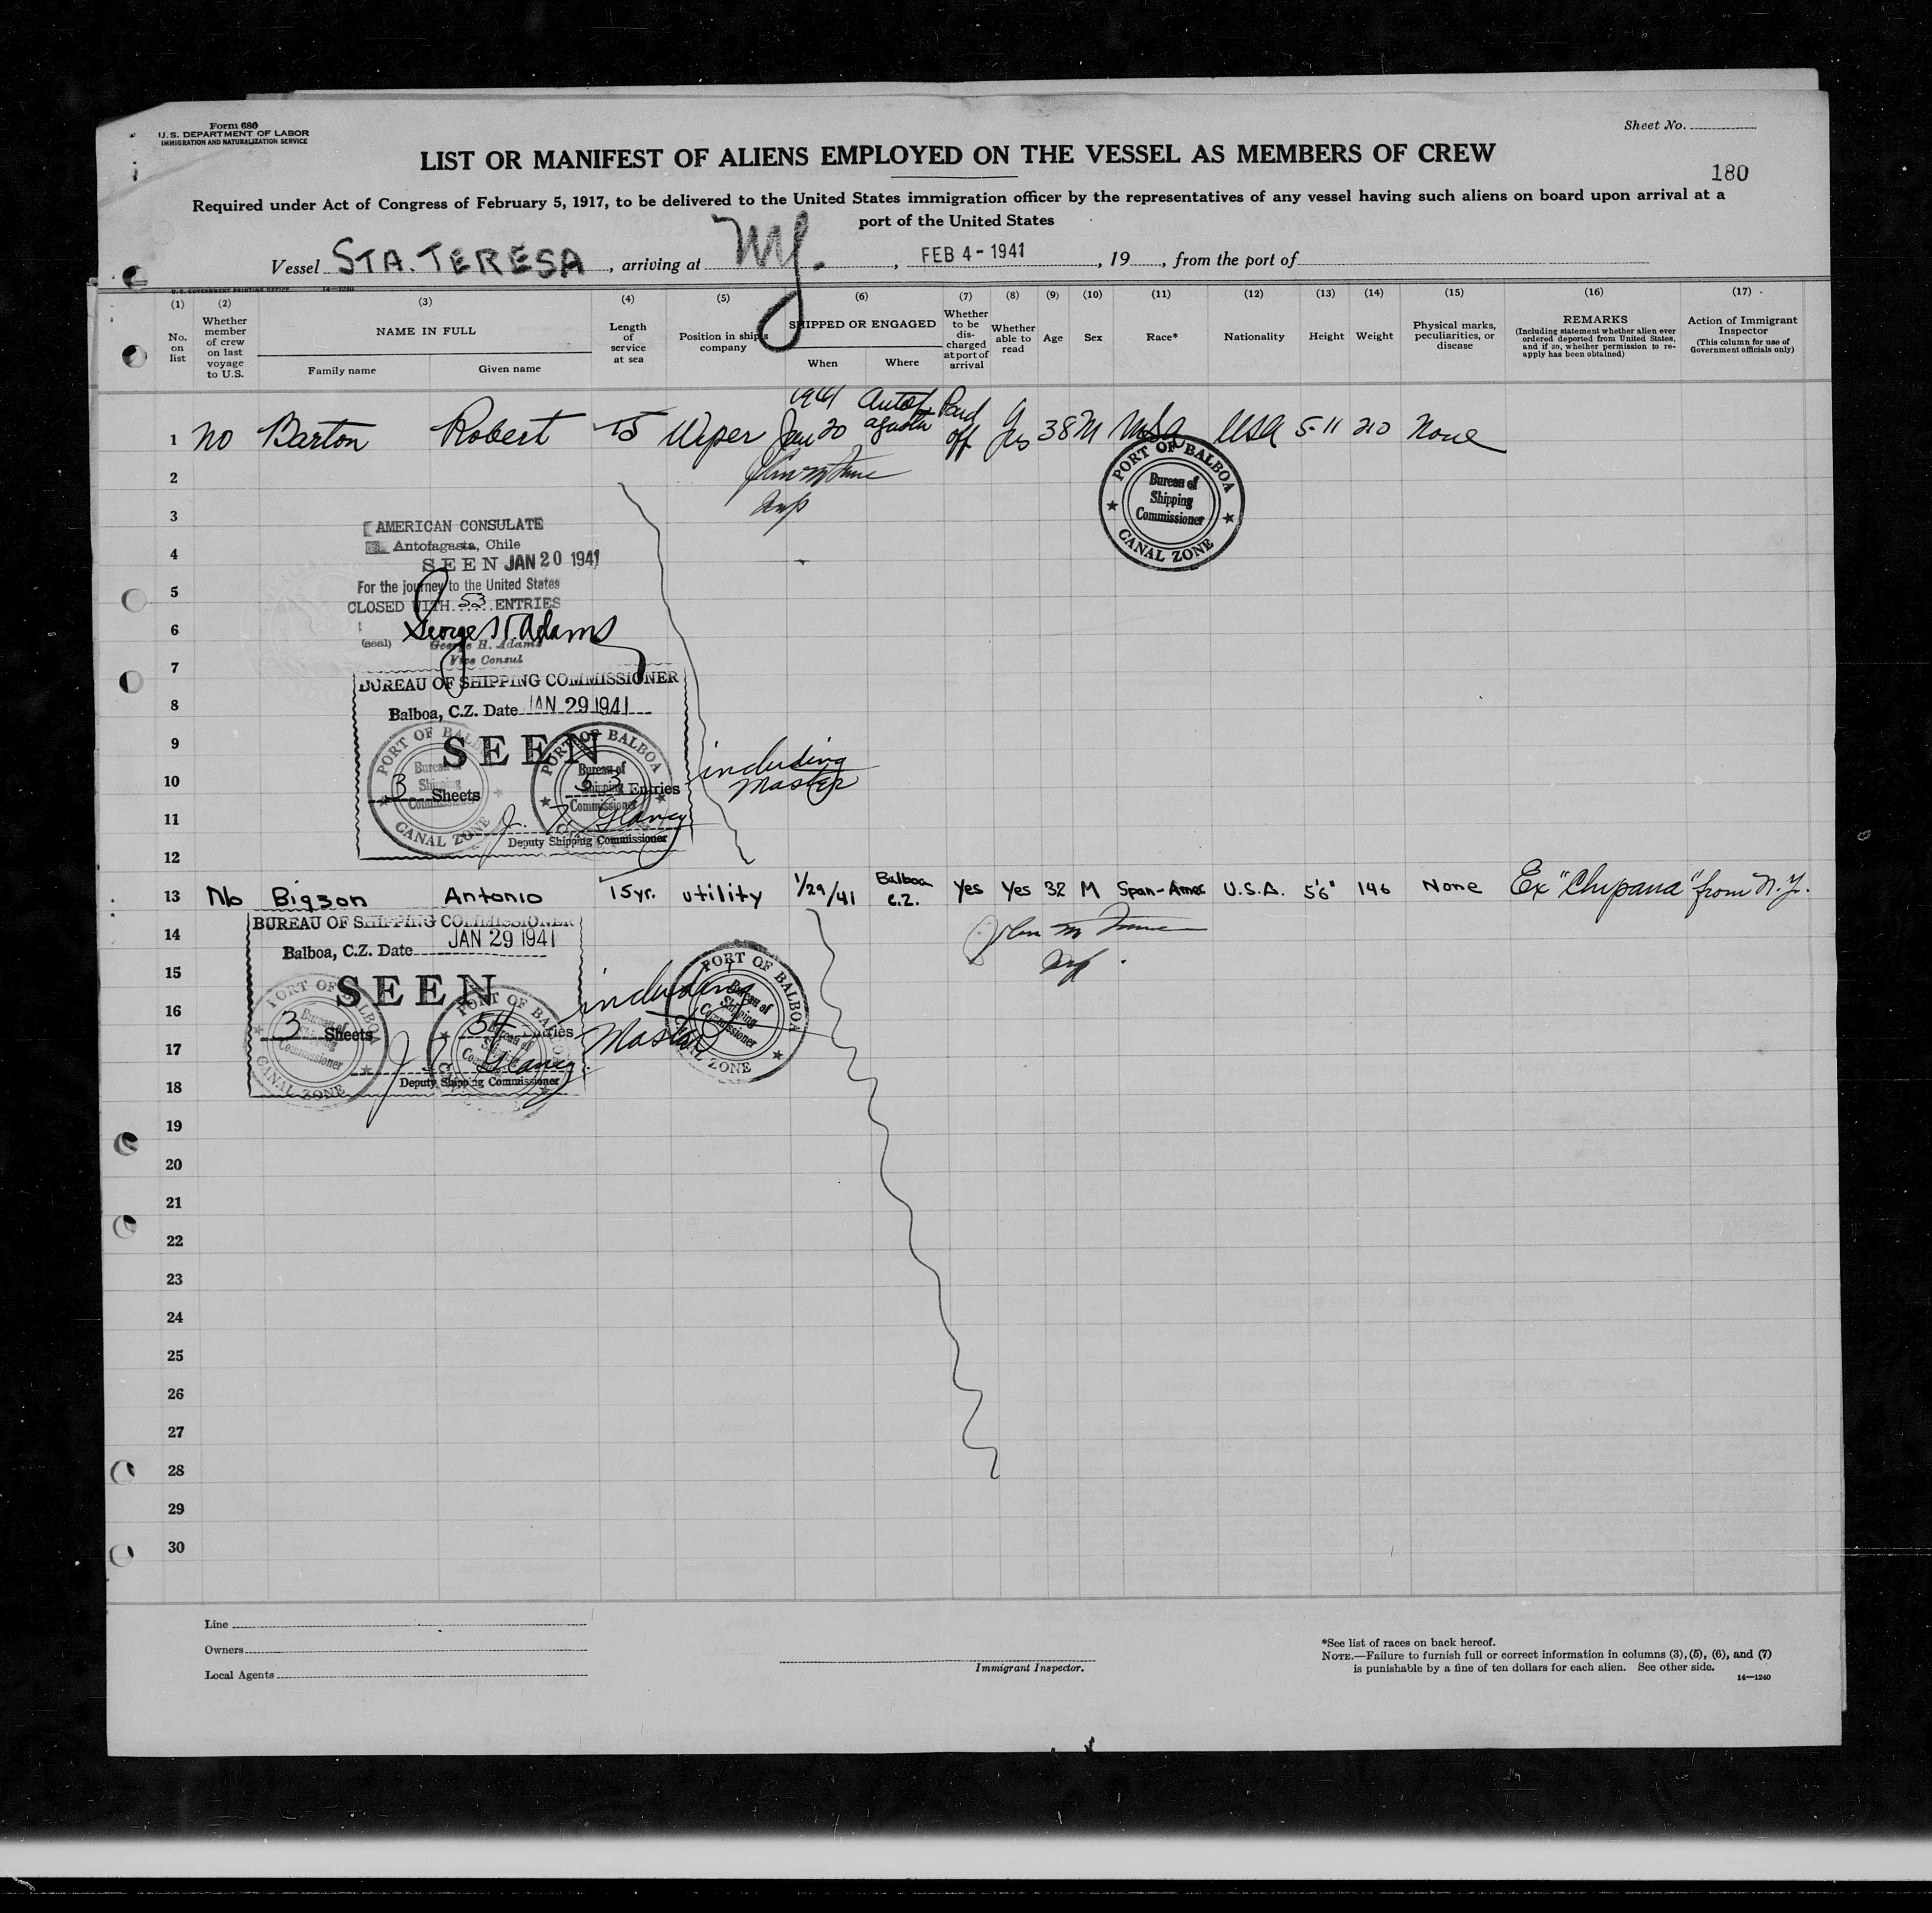 Form 680
U. S. DEPARTMENT OF LABOR
IMMIGRATION AND NATURALIZATION SERVICE
Sheet No.
LIST OR MANIFEST OF ALIENS EMPLOYED ON THE VESSEL AS MEMBERS OF CREW
180
Required under Act of Congress of February 5, 1917, to be delivered to the United States immigration officer by the representatives of any vessel having such aliens on board upon arrival at a
port of the United States
Vessel STA. TERESA, arriving at NY., FEB 4 - 1941, 19, from the port of
U.S. GOVERNMENT PRINTING OFFICE 14—1240
(1) (2) (3) (4) (5) (6) (7) (8) (9) (10) (11) (12) (13) (14) (15) (16) (17)
No. on list
Whether member of crew on last voyage to U.S.
NAME IN FULL
Family name Given name
Length of service at sea
Position in ship's company
SHIPPED OR ENGAGED
When Where
Whether to be discharged at port of arrival
Whether able to read
Age
Sex
Race*
Nationality
Height
Weight
Physical marks, peculiarities, or disease
REMARKS
(Including statement whether alien ever ordered deported from United States, and if so, whether permission to re-apply has been obtained)
Action of Immigrant Inspector
(This column for use of Government officials only)
1 No Barton Robert 15 Wiper 1941 Jan 20 Antofagasta Paid off Yes 38 M USA USA 5-11 210 None
2
3
4
5
6
7
8
9
10
11
12
AMERICAN CONSULATE
Antofagasta, Chile
SEEN JAN 20 1941
For the journey to the United States
CLOSED WITH 53 ENTRIES
George H. Adams
(seal) George H. Adams
Vice Consul
PORT OF BALBOA
Bureau of
Shipping
Commissioner
CANAL ZONE
BUREAU OF SHIPPING COMMISSIONER
Balboa, C.Z. Date JAN 29 1941
SEEN
PORT OF BALBOA Bureau of Shipping Commissioner CANAL ZONE
PORT OF BALBOA Bureau of Shipping Commissioner
3 Sheets 53 Entries
including
Master
Deputy Shipping Commissioner
13 No Bigson Antonio 15yr. utility 1/29/41 Balboa C.Z. Yes Yes 32 M Span-Amer U.S.A. 5'6" 146 None Ex "Chipana" from N.Y.
BUREAU OF SHIPPING COMMISSIONER
Balboa, C.Z. Date JAN 29 1941
SEEN
PORT OF BALBOA Bureau of Shipping Commissioner CANAL ZONE
PORT OF BALBOA
3 Sheets 54 Entries
including
Master
Deputy Shipping Commissioner
PORT OF BALBOA
Bureau of
Shipping
Commissioner
CANAL ZONE
14
15
16
17
18
19
20
21
22
23
24
25
26
27
28
29
30
Line
Owners
Local Agents
Immigrant Inspector.
*See list of races on back hereof.
NOTE.—Failure to furnish full or correct information in columns (3), (5), (6), and (7)
is punishable by a fine of ten dollars for each alien. See other side.
14—1240